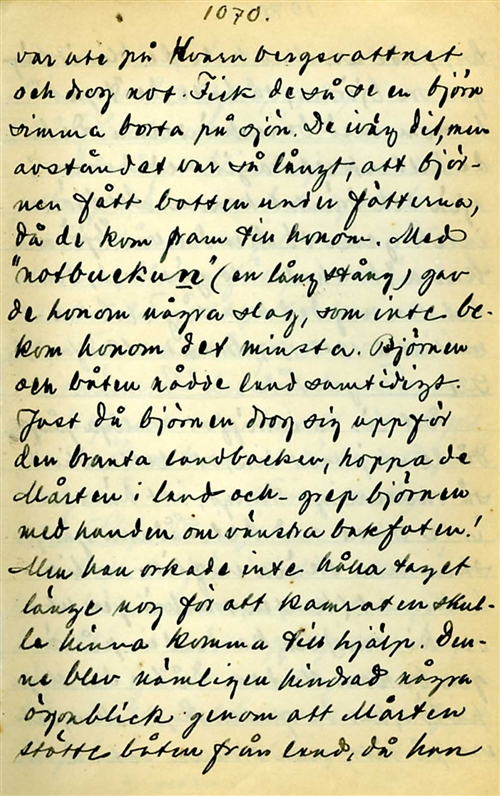 1070.
var ute på Kvarnbergsvattnet
och drog not. Fick de så se en björn
simma borta på sjön. De iväg dit, men
avståndet var så långt, att björ-
nen fått botten under fötterna,
då de kom fram till honom. Med
"notbuckun" (en lång stång) gav
de honom några slag, som inte be-
kom honom det minsta. Björnen
och båten nådde land samtidigt.
Just då björnen drog sig uppför
den branta landbacken, hoppade
Mårten i land och grep björnen
med handen om vänstra bakfoten!
Men han orkade inte hålla taget
länge nog för att kamraten skul-
le hinna komma till hjälp. Den-
ne blev nämligen hindrad några
ögonblick genom att Mårten
stötte båten från land, då han